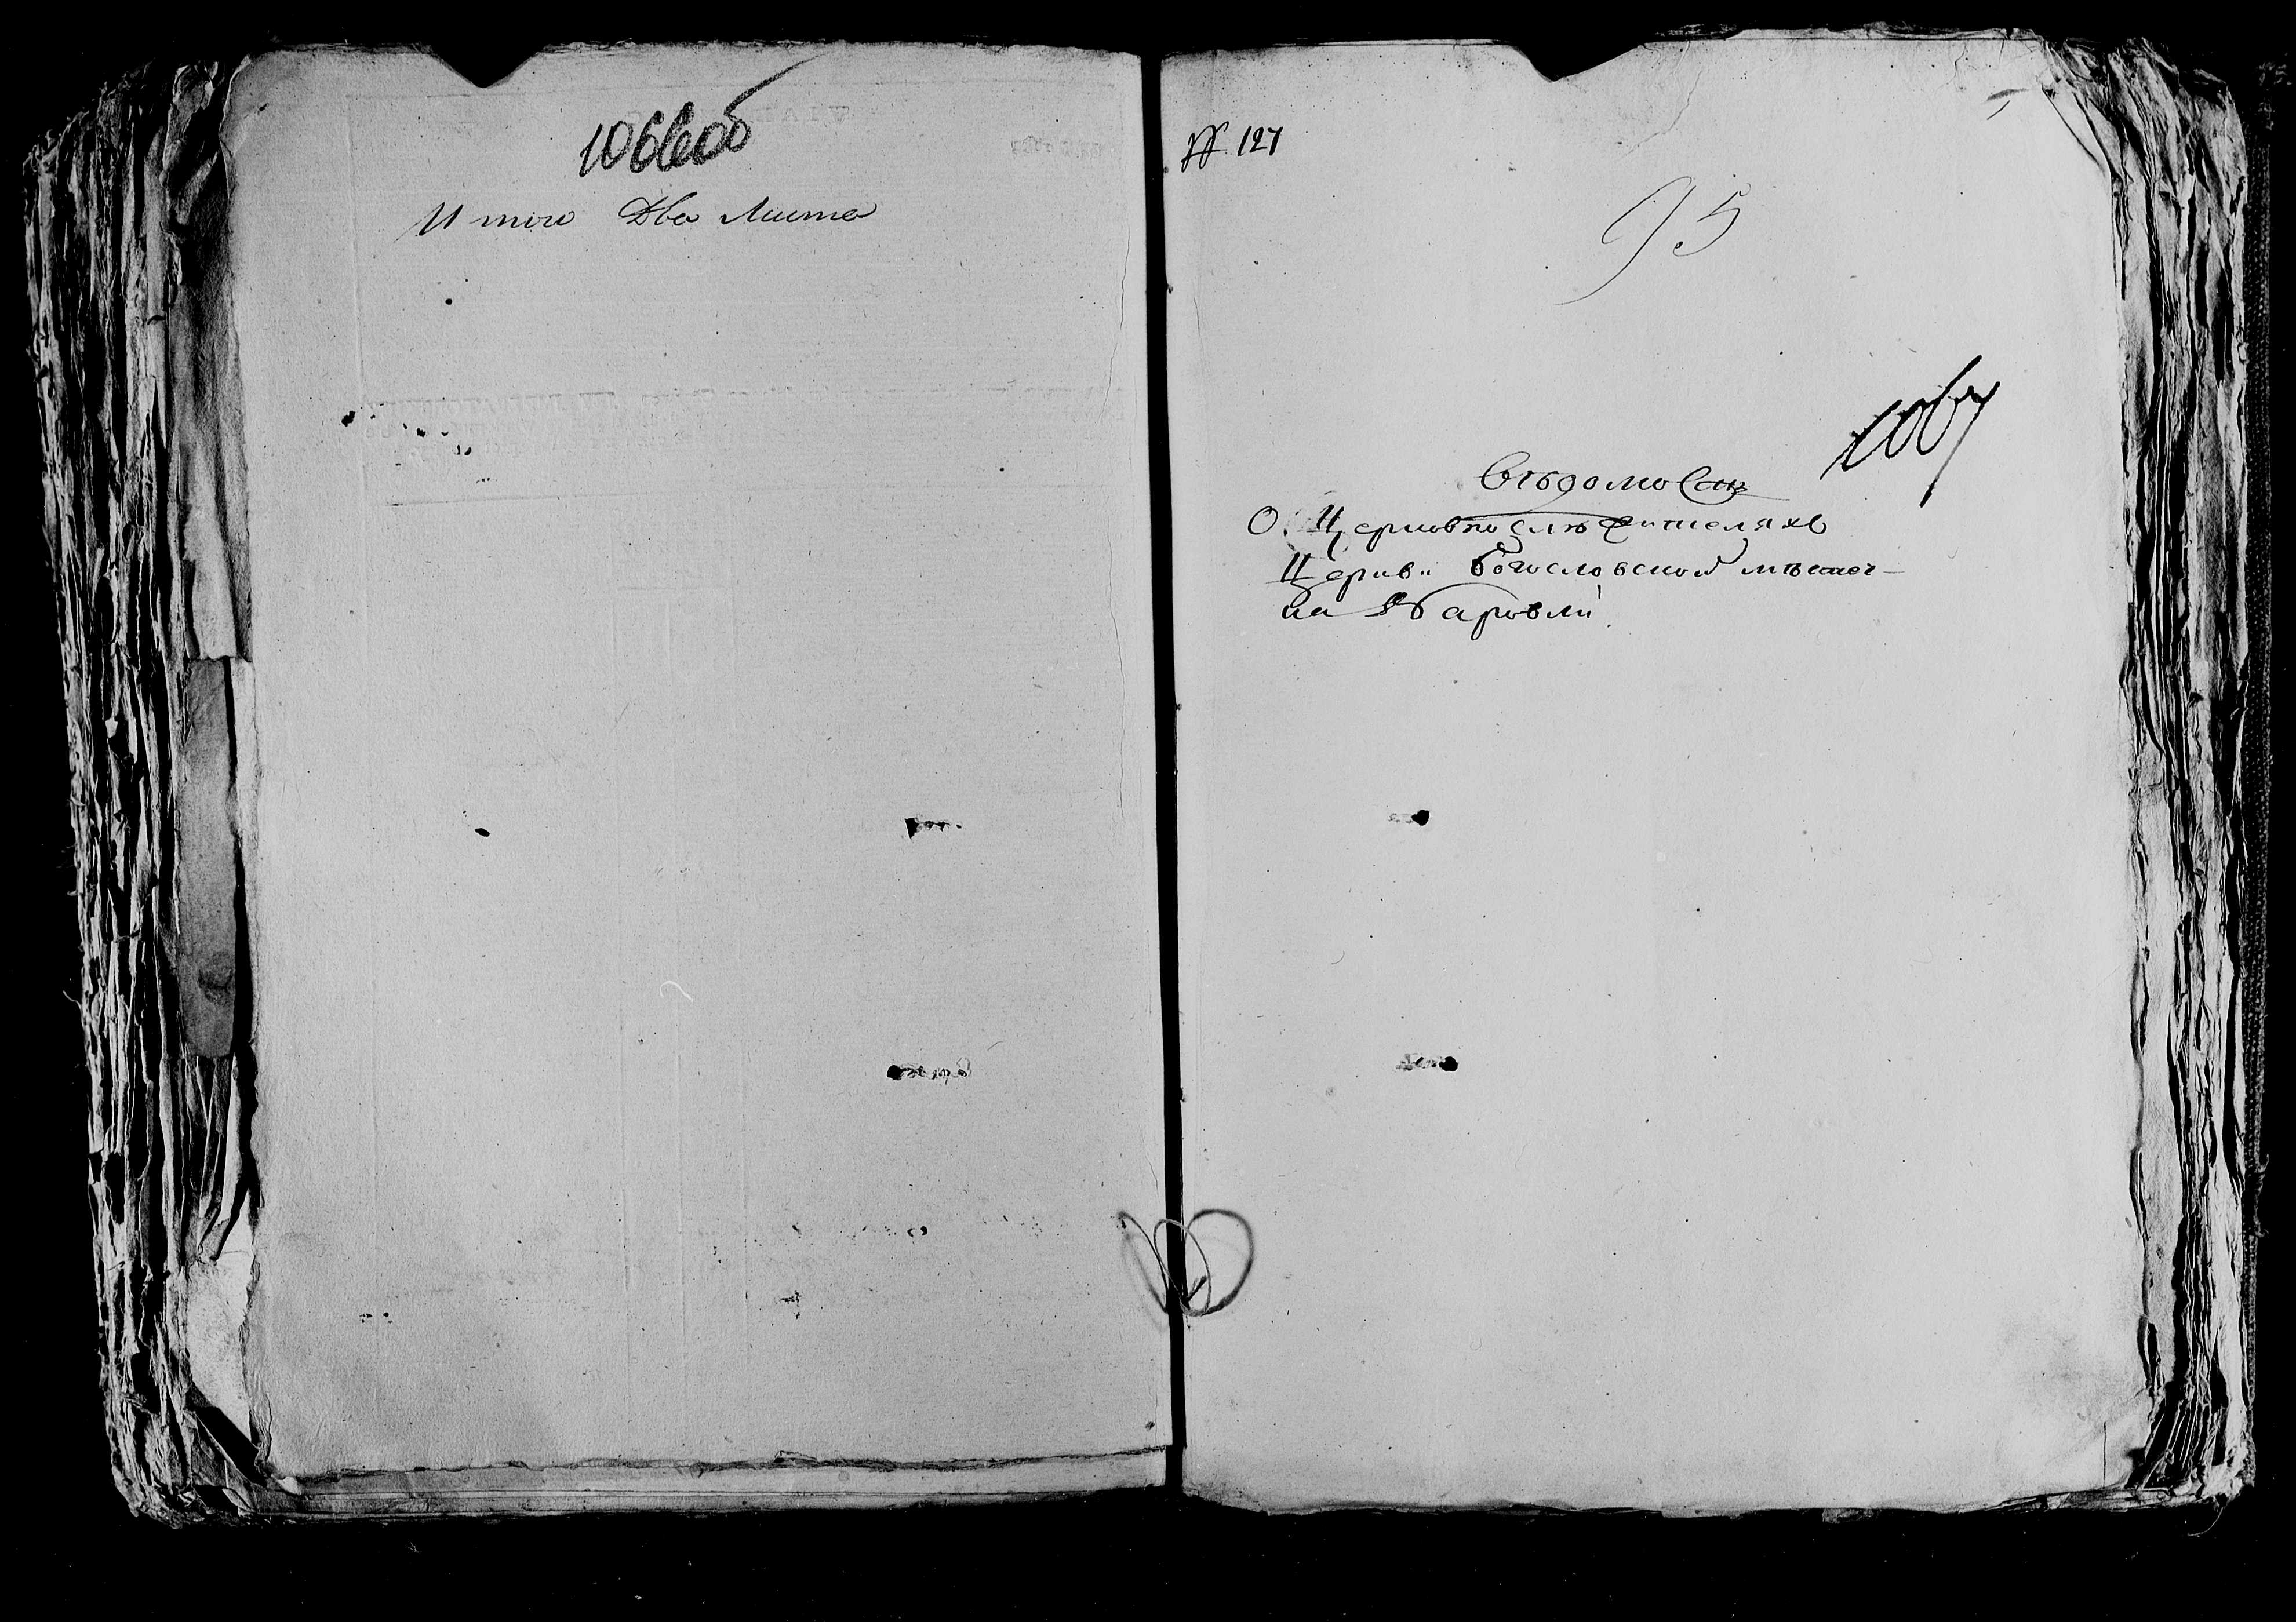 1066 об
Итого Два листа
№ 127
95
1067
Вѣдомость
О Церковнослужителяхъ
Церкви Богословской мѣстеч-
ка Наровли